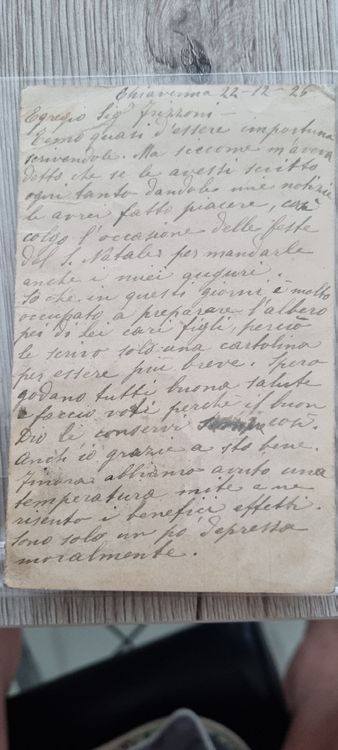 Chiavenna 22-12-26
Egregio Sig. Frizzoni -
Temo quasi d'essere importuna
scrivendole. Ma siccome m'aveva
detto che se le avessi scritto
ogni tanto dandole mie notizie
le avrei fatto piacere, così
colgo l'occasione delle feste
del S. Natale per mandarle
anche i miei auguri.
So che in questi giorni è molto
occupato a preparare l'albero
pei di lei cari figli, perciò
le scrivo solo una cartolina
per essere più breve. Spero
godano tutti buona salute
e faccio voti perchè il buon
Dio li conservi così.
Anch'io grazie a sto bene.
Finora abbiamo avuto una
temperatura mite e ne
risento i benefici effetti.
Sono solo un po' depressa
moralmente.